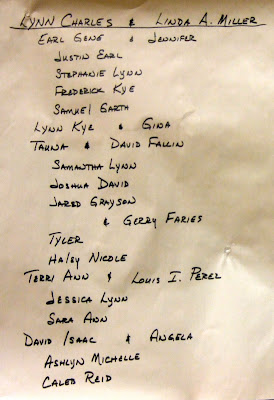 LYNN CHARLES & LINDA A. MILLER
EARL GENE & JENNIFER
JUSTIN EARL
STEPHANIE LYNN
FREDERICK KYE
SAMUEL GARTH
LYNN KYE & GINA
TAUNA & DAVID FALLIN
SAMANTHA LYNN
JOSHUA DAVID
JARED GRAYSON
& GERRY FARIES
TYLER
HALEY NICOLE
TERRI ANN & LOUIS I. PEREZ
JESSICA LYNN
SARA ANN
DAVID ISAAC & ANGELA
ASHLYN MICHELLE
CALEB REID